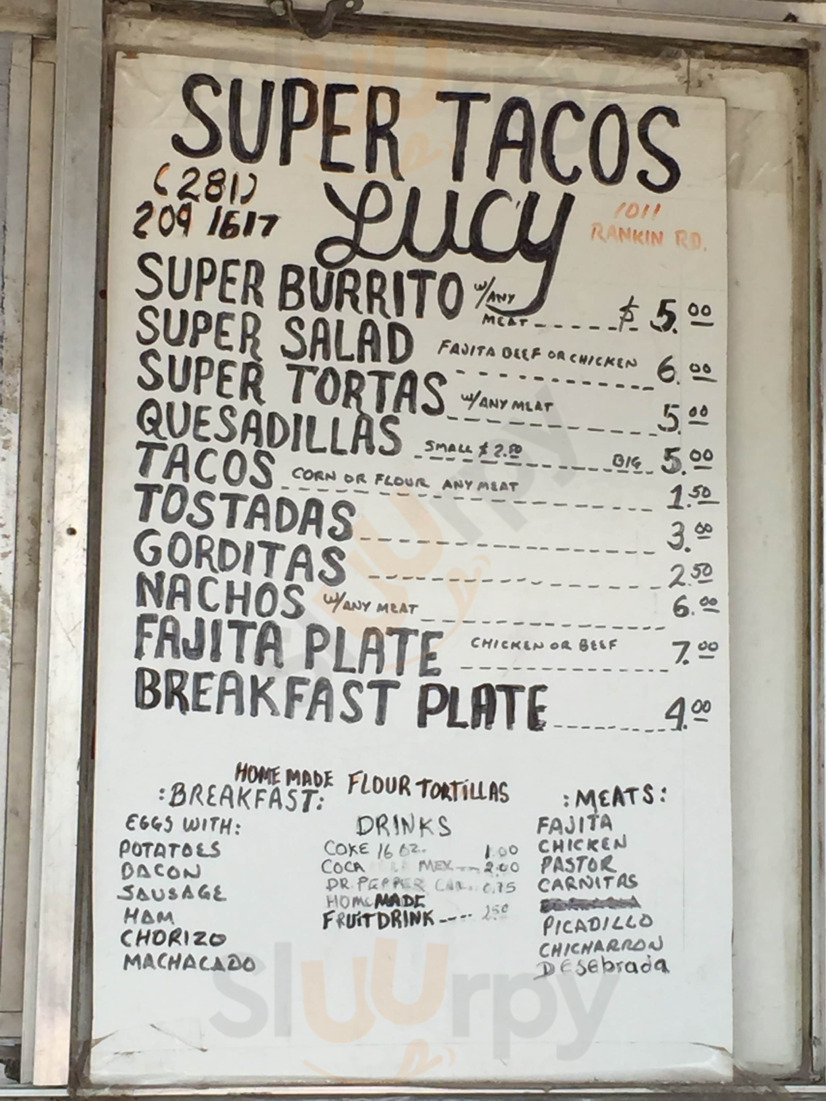 SUPER TACOS
(281)
209 1617
Lucy
1011
RANKIN RD.
SUPER BURRITO w/ANY MEAT $ 5.00
SUPER SALAD FAJITA BEEF OR CHICKEN 6.00
SUPER TORTAS w/ANY MEAT 5.00
QUESADILLAS SMALL $ 2.50 BIG 5.00
TACOS CORN OR FLOUR ANY MEAT 1.50
TOSTADAS 3.00
GORDITAS 2.50
NACHOS w/ANY MEAT 6.00
FAJITA PLATE CHICKEN OR BEEF 7.00
BREAKFAST PLATE 4.00
HOME MADE FLOUR TORTILLAS
:BREAKFAST:
EGGS WITH:
POTATOES
BACON
SAUSAGE
HAM
CHORIZO
MACHACADO
DRINKS
COKE 16 OZ. 1.00
COCA MEX 2.00
DR. PEPPER 0.75
HOMEMADE
FRUIT DRINK ---- 2.50
:MEATS:
FAJITA
CHICKEN
PASTOR
CARNITAS
PICADILLO
CHICHARRON
DESEbrada
sluurpy
sluurpy